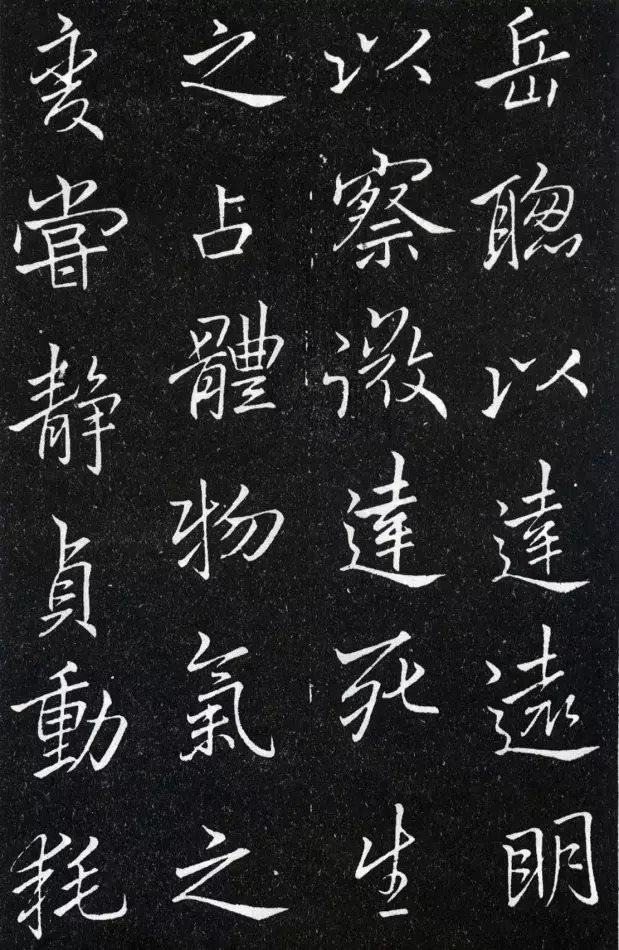 岳聦以達遠明
以察微達死生
之占體物氣之
变嘗静貞動耗